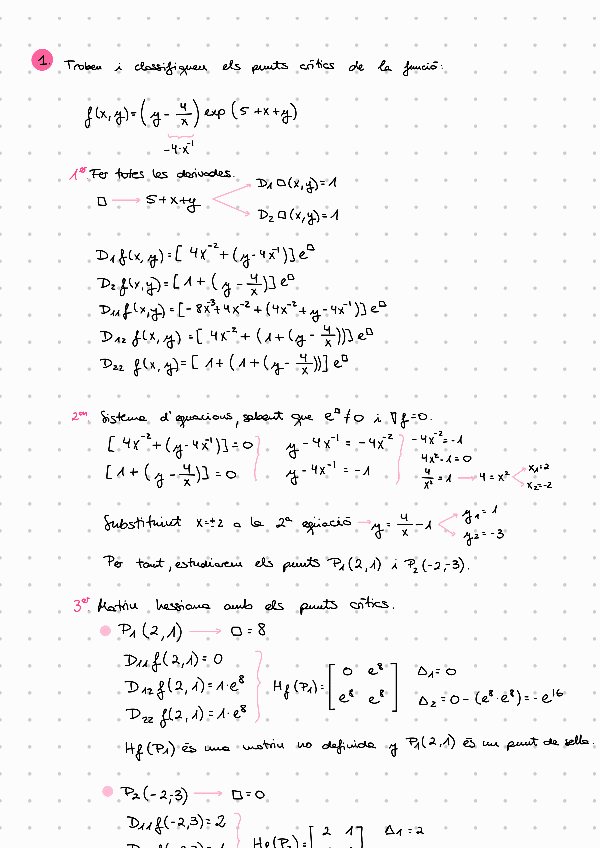 1. Trobeu i classifiqueu els punts crítics de la funció:
f(x,y)=(y - 4/x) exp (5+x+y)
-4·x⁻¹
1er Fer totes les derivades.
□ → 5+x+y
D₁□(x,y)=1
D₂□(x,y)=1
D₁f(x,y)=[4x⁻²+(y-4x⁻¹)]e^□
D₂f(x,y)=[1+(y-4/x)]e^□
D₁₁f(x,y)=[-8x⁻³+4x⁻²+(4x⁻²+y-4x⁻¹)]e^□
D₁₂f(x,y)=[4x⁻²+(1+(y-4/x))]e^□
D₂₂f(x,y)=[1+(1+(y-4/x))]e^□
2on. Sistema d'equacions, sabent que e^□≠0 i ∇f=0.
[4x⁻²+(y-4x⁻¹)]=0 y-4x⁻¹=-4x⁻² -4x⁻²=-1
4x²-1=0
[1+(y-4/x)]=0 y-4x⁻¹=-1 4/x²=1 → 4=x² x₁=2
x₂=-2
Substituint x=±2 a la 2ª equació → y=4/x-1 y₁=1
y₂=-3
Per tant, estudiarem els punts P₁(2,1) i P₂(-2,-3).
3er. Matriu hessiana amb els punts crítics.
P₁(2,1) → □=8
D₁₁f(2,1)=0
D₁₂f(2,1)=1·e⁸
D₂₂f(2,1)=1·e⁸
Hf(P₁)=[0 e⁸
e⁸ e⁸]
Δ₁=0
Δ₂=0-(e⁸·e⁸)=-e¹⁶
Hf(P₁) és una matriu no definida y P₁(2,1) és un punt de sella.
P₂(-2,-3) → □=0
D₁₁f(-2,-3)=2
Hf(P₂)=[2 1 Δ₁=2